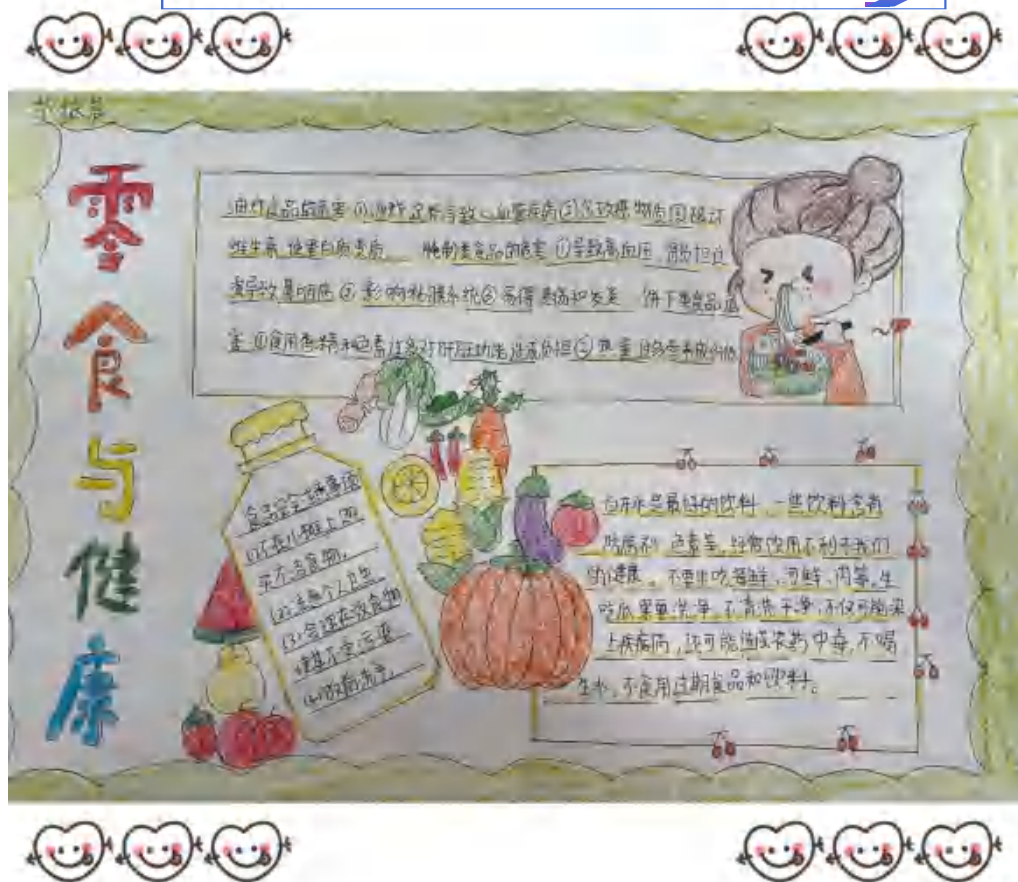 零食与健康
油炸食品的危害①油炸淀粉导致心血管疾病②含致癌物质③破坏
维生素,使蛋白质变质 腌制类食品的危害①导致高血压,肾负担过
重导致鼻咽癌②影响粘膜系统③易得溃疡和发炎 饼干类食品
害①食用香精和色素过多对肝脏功能造成负担②热量过多营养成分低
食品安全
(1)不在小摊上购
买不洁食物.
(2).注意个人卫生
(3)合理存放食物
(4)饭前洗手.
白开水是最好的饮料,一些饮料含有
防腐剂、色素等,经常饮用不利于我们
的健康。不要生吃海鲜、河鲜、肉等,生
吃瓜果要洗净,不清洗干净,不仅可能染
上疾病,还可能造成农药中毒,不喝
生水,不食用过期食品和饮料。